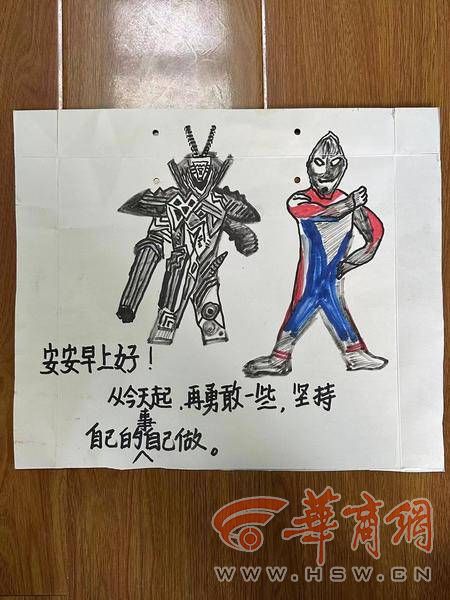 安安早上好！
从今天起，再勇敢一些，坚持
自己的事自己做。
華商網
WWW.HSW.CN